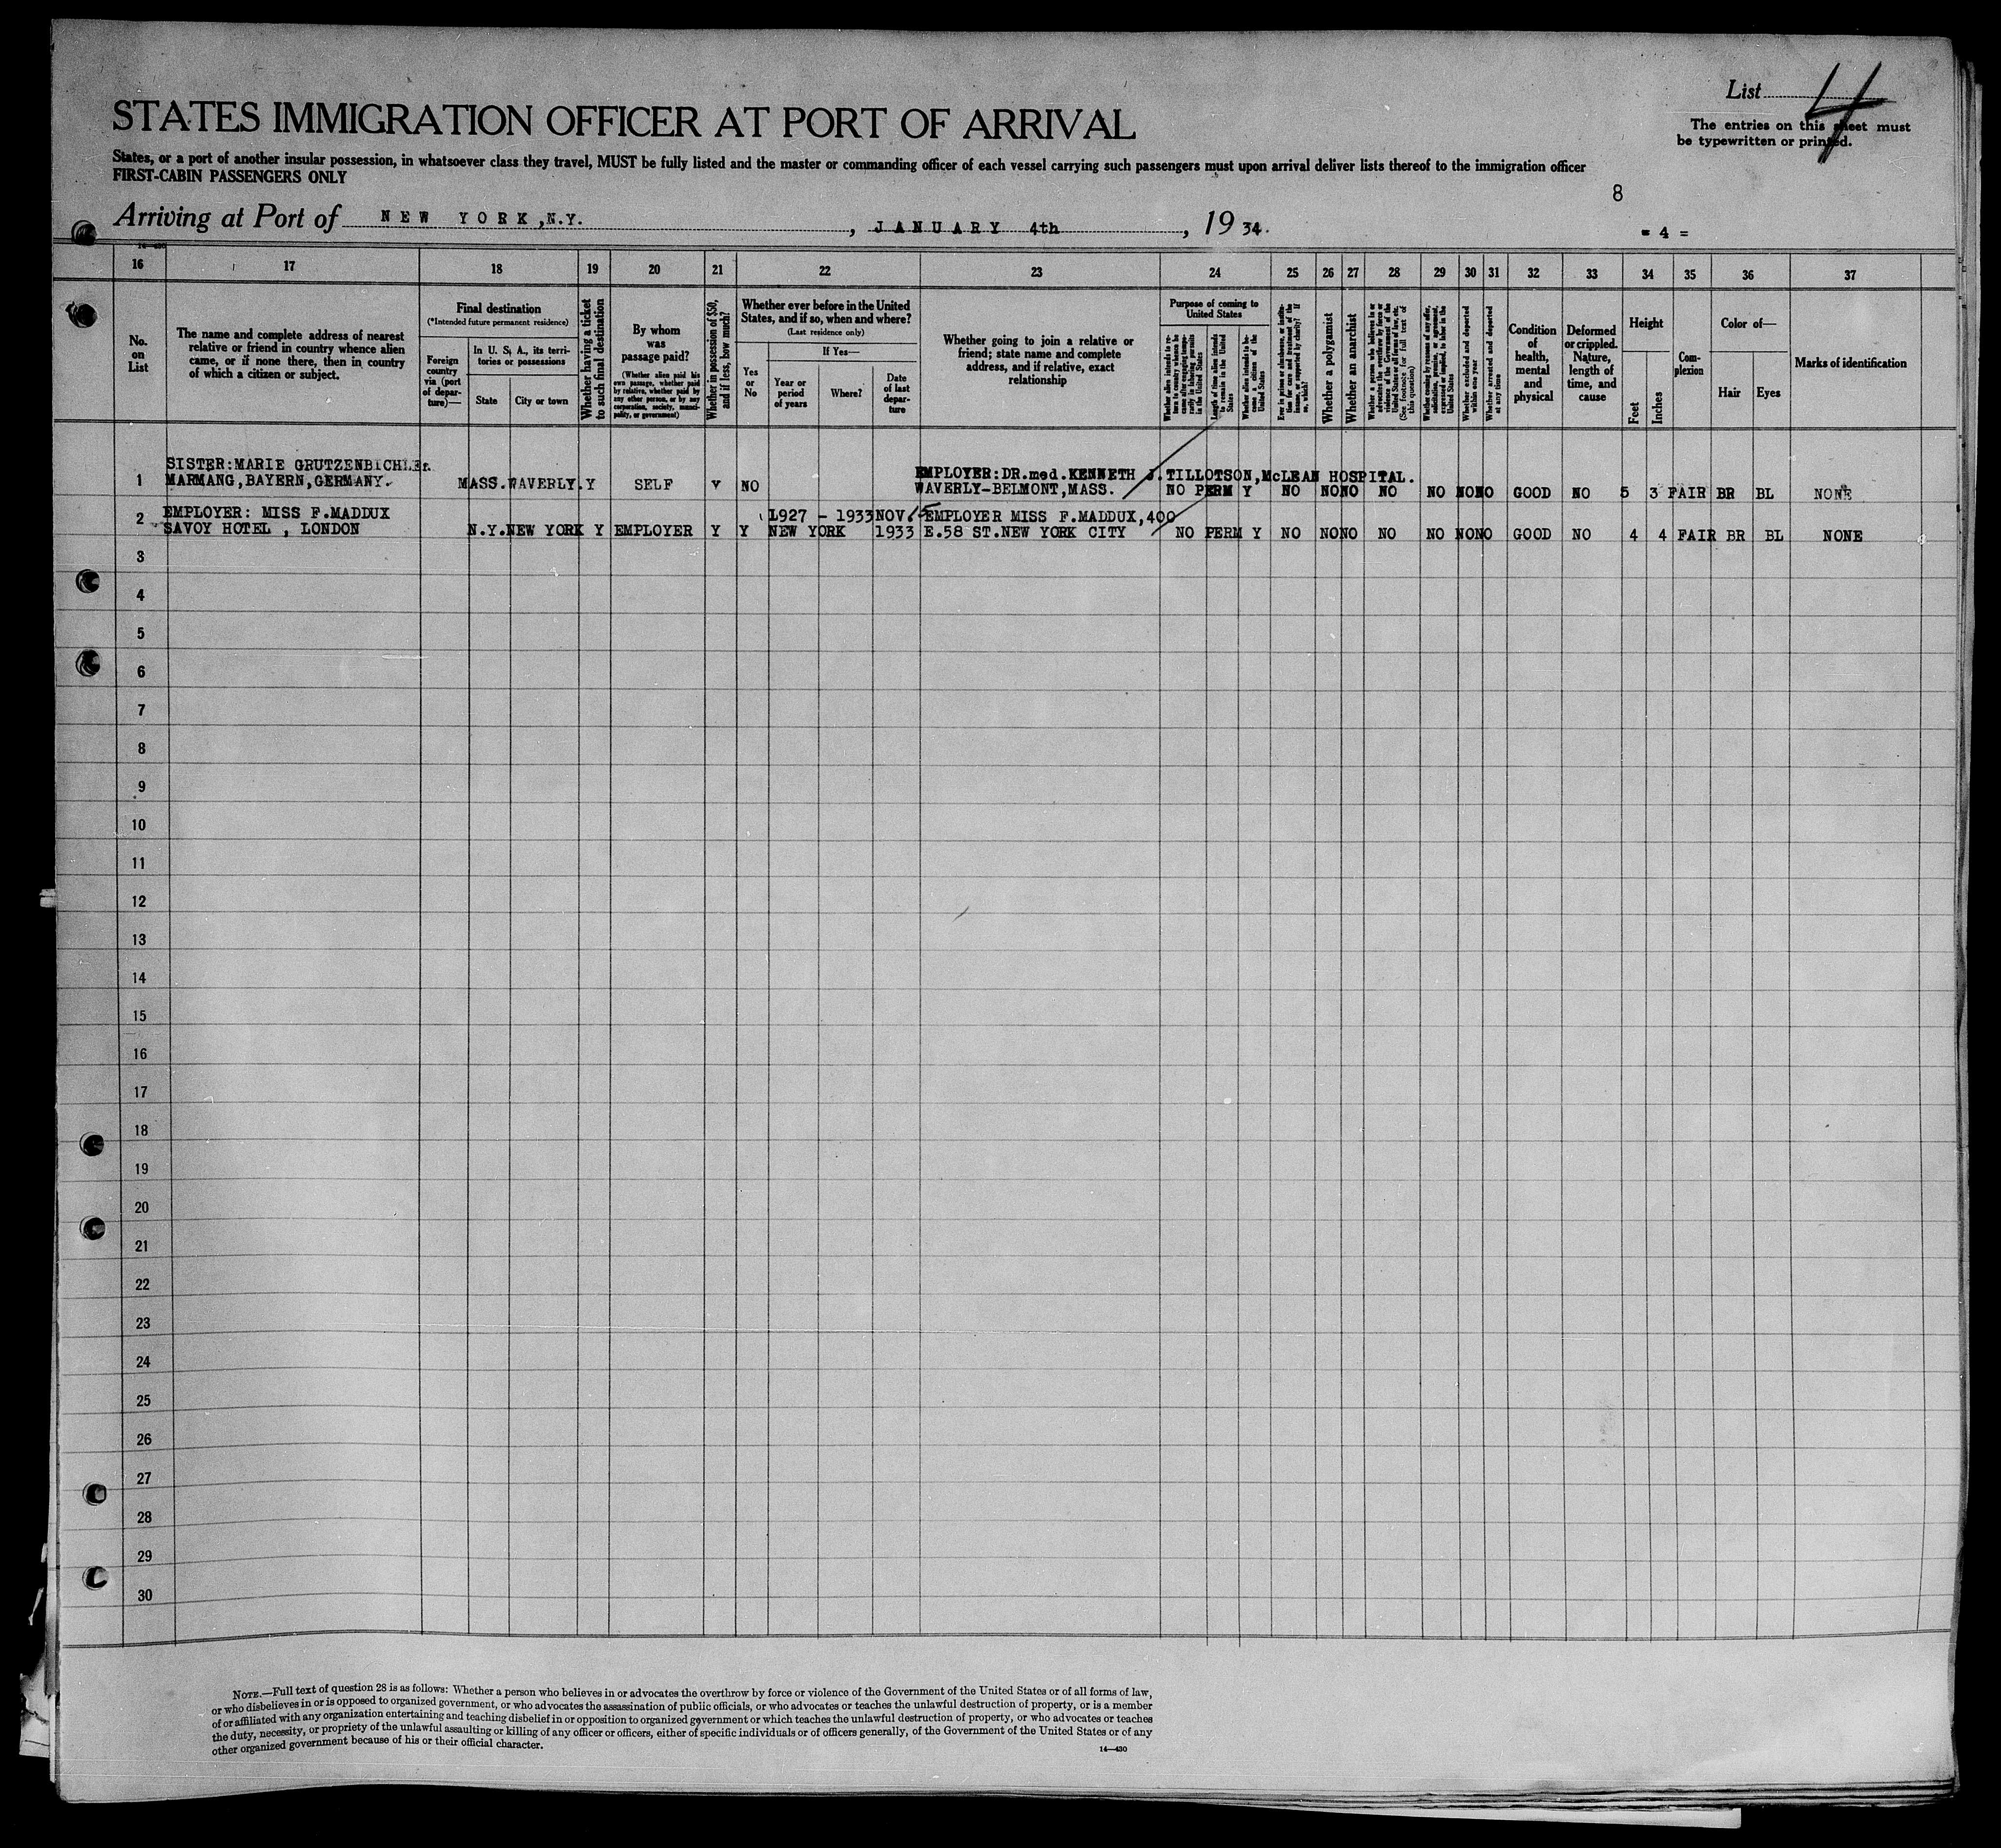 List 4
The entries on this sheet must
be typewritten or printed.
STATES IMMIGRATION OFFICER AT PORT OF ARRIVAL
States, or a port of another insular possession, in whatsoever class they travel, MUST be fully listed and the master or commanding officer of each vessel carrying such passengers must upon arrival deliver lists thereof to the immigration officer
FIRST-CABIN PASSENGERS ONLY
8
Arriving at Port of NEW YORK, N.Y. , JANUARY 4th , 19 34.
= 4 =
14-430
16 17 18 19 20 21 22 23 24 25 26 27 28 29 30 31 32 33 34 35 36 37
No.
on
List
The name and complete address of nearest
relative or friend in country whence alien
came, or if none there, then in country
of which a citizen or subject.
Final destination
(*Intended future permanent residence)
Foreign
country
via (port
of depar-
ture)—
In U. S. A., its terri-
tories or possessions
State
City or town
Whether having a ticket
to such final destination
By whom
was
passage paid?
(Whether alien paid his
own passage, whether paid
by relative, whether paid by
any other person, or by any
corporation, society, munici-
pality, or government)
Whether in possession of $50,
and if less, how much?
Whether ever before in the United
States, and if so, when and where?
(Last residence only)
Yes
or
No
If Yes—
Year or
period
of years
Where?
Date
of last
depar-
ture
Whether going to join a relative or
friend; state name and complete
address, and if relative, exact
relationship
Purpose of coming to
United States
Length of time alien intends
to remain in the United
States
Whether alien intends to be-
come a citizen of the
United States
Whether a polygamist
Whether an anarchist
Whether excluded and deported
within one year
Whether arrested and deported
at any time
Condition
of
health,
mental
and
physical
Deformed
or crippled.
Nature,
length of
time, and
cause
Height
Feet
Inches
Com-
plexion
Color of—
Hair
Eyes
Marks of identification
SISTER:MARIE GRUTZENBICHLEr. EMPLOYER:DR.med.KENNETH J.TILLOTSON,McLEAN HOSPITAL.
1 MARMANG,BAYERN,GERMANY. MASS. WAVERLY. Y SELF Y NO WAVERLY-BELMONT,MASS. NO PERM Y NO NO NO NO NO NO NO GOOD NO 5 3 FAIR BR BL NONE
2 EMPLOYER: MISS F.MADDUX 1927 - 1933 NOV. 15 EMPLOYER MISS F.MADDUX,400
SAVOY HOTEL , LONDON N.Y. NEW YORK Y EMPLOYER Y Y NEW YORK 1933 E.58 ST.NEW YORK CITY NO PERM Y NO NO NO NO NO NO NO GOOD NO 4 4 FAIR BR BL NONE
3
4
5
6
7
8
9
10
11
12
13
14
15
16
17
18
19
20
21
22
23
24
25
26
27
28
29
30
NOTE.—Full text of question 28 is as follows: Whether a person who believes in or advocates the overthrow by force or violence of the Government of the United States or of all forms of law,
or who disbelieves in or is opposed to organized government, or who advocates the assassination of public officials, or who advocates or teaches the unlawful destruction of property, or is a member
of or affiliated with any organization entertaining and teaching disbelief in or opposition to organized government or which teaches the unlawful destruction of property, or who advocates or teaches
the duty, necessity, or propriety of the unlawful assaulting or killing of any officer or officers, either of specific individuals or of officers generally, of the Government of the United States or of any
other organized government because of his or their official character.
14—430